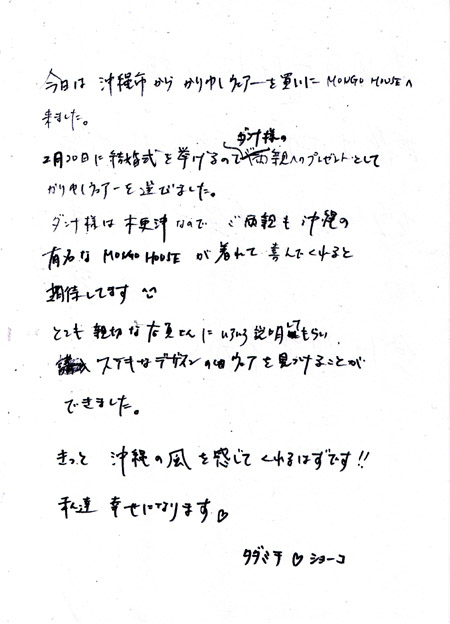 今日は 沖縄市から かりゆしウェアーを買いに MONGO HOUSEへ
来ました。
ダンナ様の
2月20日に結婚式を挙げるので両親へのプレゼントとして
かりゆしウェアーを選びました。
ダンナ様は 木更津なので ご両親も 沖縄の
有名な MONGO HOUSE が着れて 喜んでくれると
期待してます
とても 親切な店員さんに いろいろ説明してもらい、
ステキなデザインの ウェアを見つけることが
できました。
きっと 沖縄の風を感じてくれるはずです!!
私達 幸せになります♡
タダミチ ♡ ショーコ